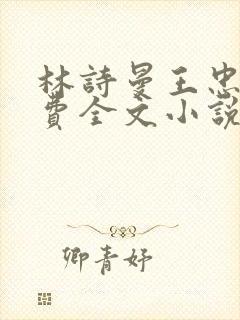 林詩曼王忠
費全文小說
卿青妤